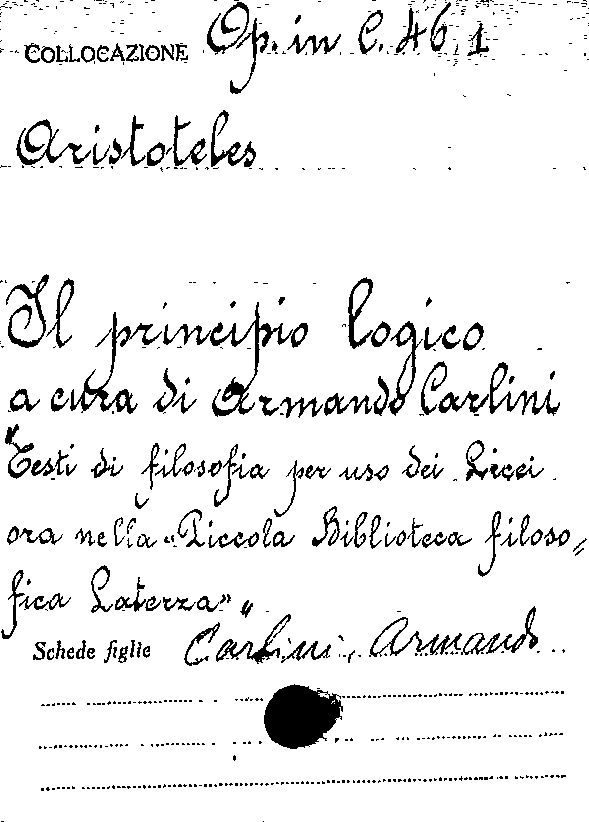 COLLOCAZIONE Op. in C. 46. 1
Aristoteles
Il principio logico
a cura di Armando Carlini
"Testi di filosofia per uso dei Licei
ora nella «Piccola Biblioteca filoso=
fica Laterza»"
Schede figlie Carlini, Armando